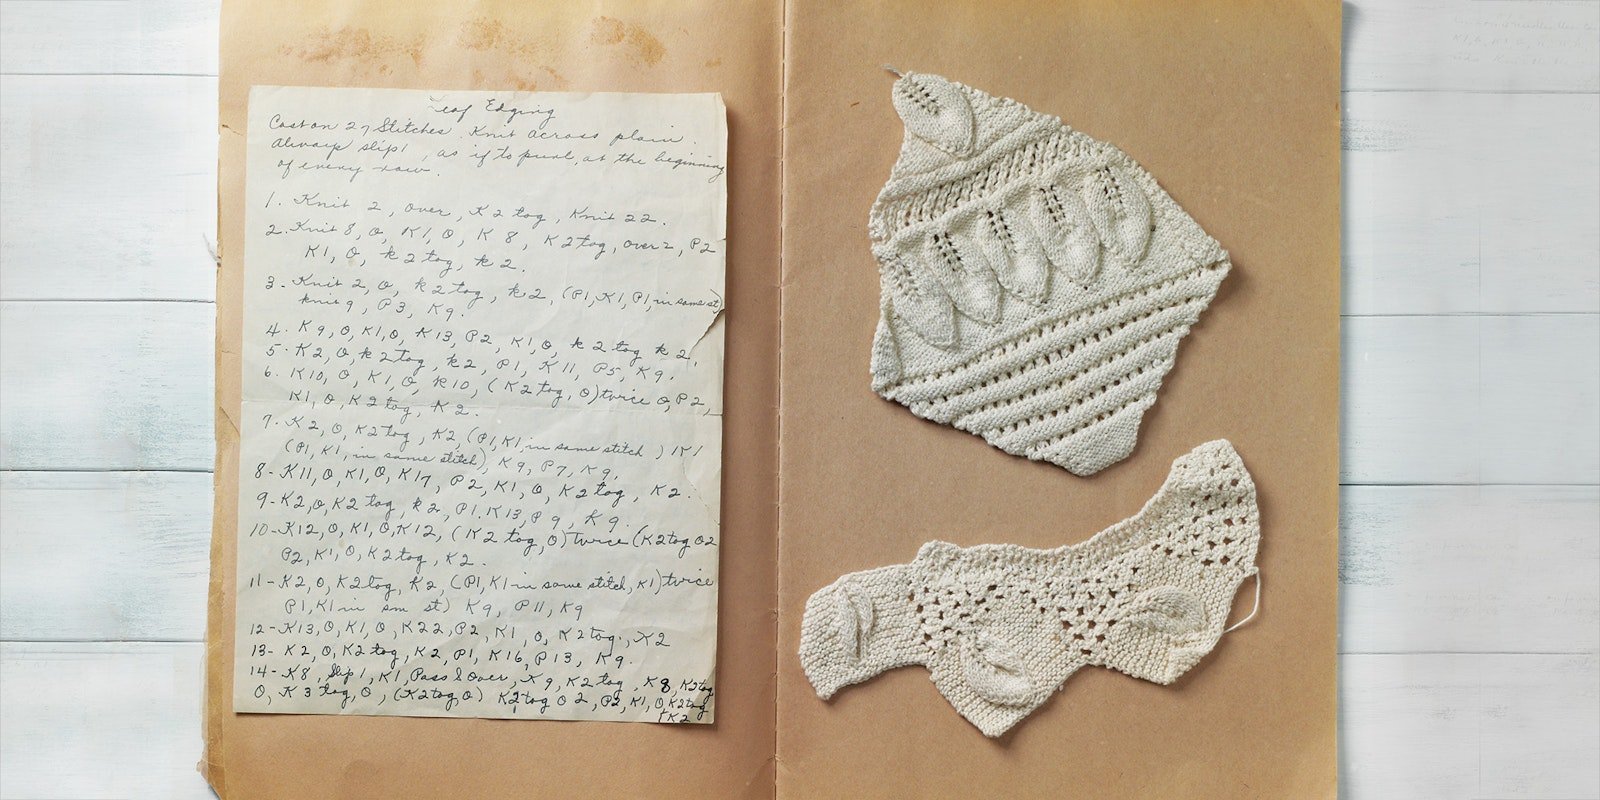 Leaf Edging
Cast on 27 Stitches. Knit across plain.
Always slip 1, as if to purl, at the beginning
of every row.
1. Knit 2, over, K2 tog, Knit 22.
2. Knit 8, O, K1, O, K8, K2 tog, over 2, P2
K1, O, k2 tog, k2.
3. Knit 2, O, k2 tog, k2, (P1, K1, P1, in same st)
knit 9, P3, K9.
4. K9, O, K1, O, K13, P2, K1, O, k2 tog k2,
5. K2, O, k2 tog, k2, P1, K11, P5, K9.
6. K10, O, K1, O, K10, (K2 tog, O) twice O, P2,
K1, O, K2 tog, K2.
7. K2, O, K2 tog, K2, (P1, K1, in same stitch) K1
(P1, K1, in same stitch), K9, P7, K9,
8- K11, O, K1, O, K17, P2, K1, O, K2 tog, K2.
9- K2, O, K2 tog, k2, P1. K13, P9, K9.
10- K12, O, K1, O, K12, (K2 tog, O) twice (K2 tog O2
P2, K1, O, K2 tog, K2.
11- K2, O, K2 tog, K2, (P1, K1 in same stitch, K1) twice
P1, K1 in sm st) K9, P11, K9
12- K13, O, K1, O, K22, P2, K1, O, K2 tog, K2
13- K2, O, K2 tog, K2, P1, K16, P13, K9.
14- K8, Slip 1, K1, Pass S over, K9, K2 tog, K8, K2 tog
O, K3 tog, O, (K2 tog, O) K2 tog O2, P2, K1, O, K2 tog
K2